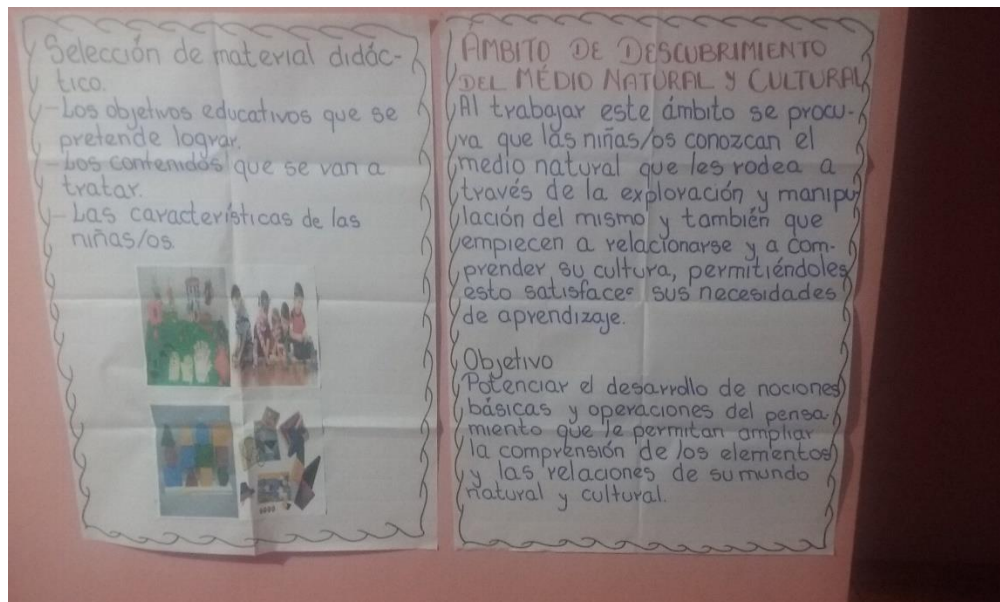 Selección de material didác-
tico.
- Los objetivos educativos que se
pretende lograr.
- Los contenidos que se van a
tratar.
- Las características de las
niñas/os.
ÁMBITO DE DESCUBRIMIENTO
DEL MÉDIO NATURAL Y CULTURAL
Al trabajar este ámbito se procu-
ra que las niñas/os conozcan el
medio natural que les rodea a
través de la exploración y manipu
lación del mismo y también que
empiecen a relacionarse y a com-
prender su cultura, permitiéndoles
esto satisfacer sus necesidades
de aprendizaje.
Objetivo
Potenciar el desarrollo de nociones
básicas y operaciones del pensa
miento que le permitan ampliar
la comprensión de los elementos
y las relaciones de su mundo
natural y cultural.